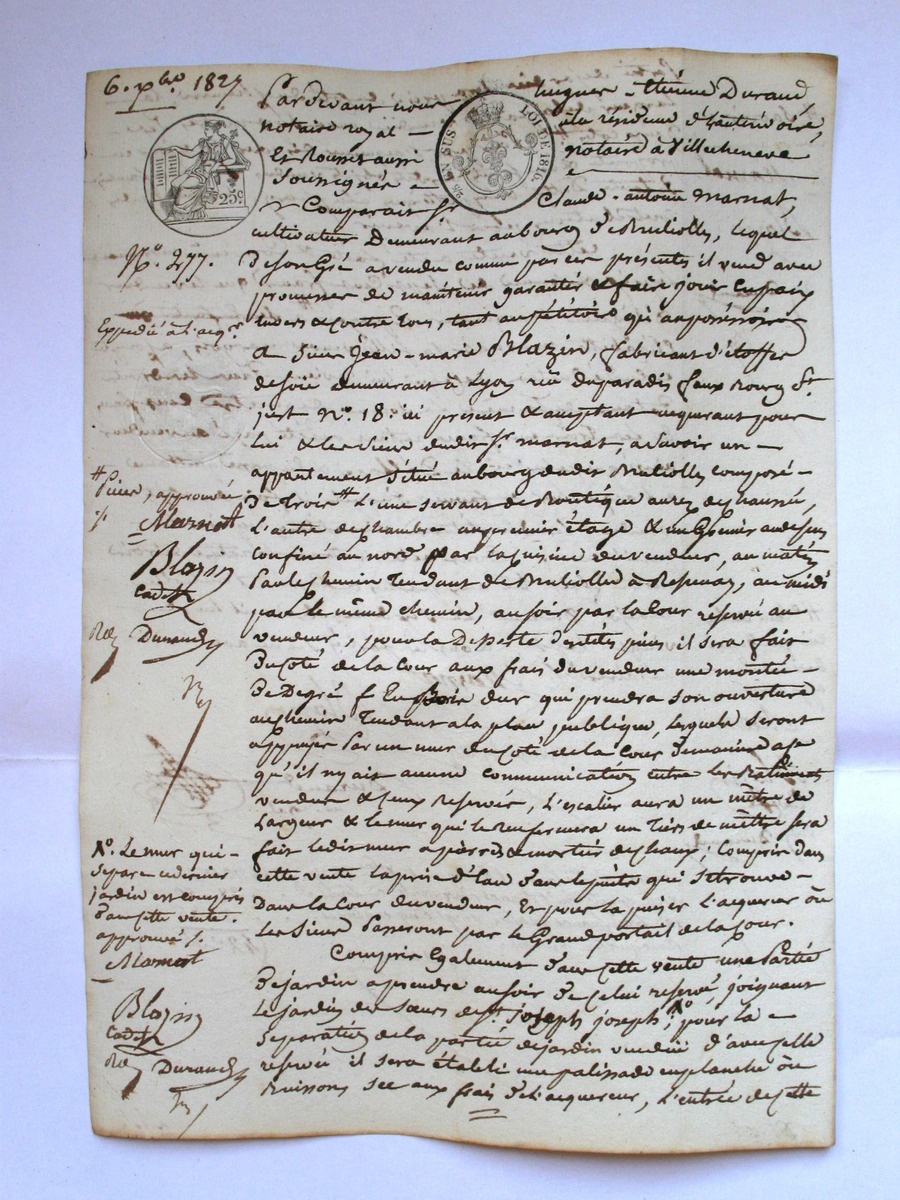 6. xbre. 1827
Pardevant nous hugues-Etienne Durand
notaire royal - à la résidence d'hauterivoire,
Et Rousset aussi notaire à Villecheneve
Soussignés -
Comparait Sr. Claude-antoine Marnat,
25c
25 EN SUS
LOI DE 1816.
cultivateur Demeurant au bourg De Brullioles, lequel
N°. 277.
de son Gré a vendu comme par ces présentes il vend avec
promesse de maintenir garantir & faire jouir en paix
Expedié à l'acqr.
envers & contre tous, tant au pétitoire qu'au possessoire
a Sieur Jean-marie Blazin, fabricant d'étoffes
de soie demeurant à Lyon rue du paradis faux bourg St.
just N°. 18. ici present & acceptant acquerant pour
lui & les siens dudit Sr. marnat, a Savoir un -
appartement situé au bourg dudit Brullioles composé -
# Pièces, approuvé
De trois # L'une servant de Boutique au rez de chaussé,
Marnat
L'autre de chambre au premier étage & un Grenier au dessus
Blazin
confiné au nord par la cuisine du vendeur, au matin
cadet
Par le chemin Tendant de Brulliolle à Bessenay, au midi
par le même chemin, au soir par la cour reservé au
Rt Durand
vendeur, pour la Desserte desdites pièces il sera fait
Du côté de la Cour aux frais du vendeur une montée -
De Degré En Bois dur qui prendra son ouverture
au chemin Tendant a la place publique, lesquels seront
appuyés Par un mur du côté de la Cour de manière a ce
qu'il n'y ait aucune communication entre les Batiments
vendus & ceux Reservés, L'escalier aura un mètre de
Largeur & le mur qui le renfermera un tiers de mêttre sera
X°. Le mur qui -
fait ledit mur a pierres & mortier de chaux; Comprise dans
separe ce dernier
cette vente la prise d'Eau dans le puits qui se trouve -
jardin est compris
Dans la Cour du vendeur, Et pour la puiser L'acquereur ou
dans cette vente.
Les Siens Passeront par le Grand portail de la Cour.
approuvé
Marnat
Compris Egalement dans cette vente une Partie
De jardin a prendre au soir de celui reservé, joignant
Blazin
Le jardin des Sœurs de St. joseph joseph; X° pour la -
cadet
Separation de la partie de jardin vendue d'avec celle
Rt Durand
reservée il sera établi une palissade en planche ou
Buissons sec aux frais de L'acquereur, L'entrée de cette